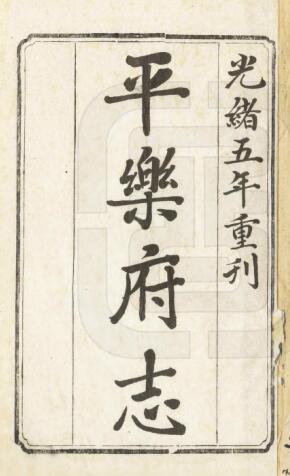 光緒五年重刋
平樂府志